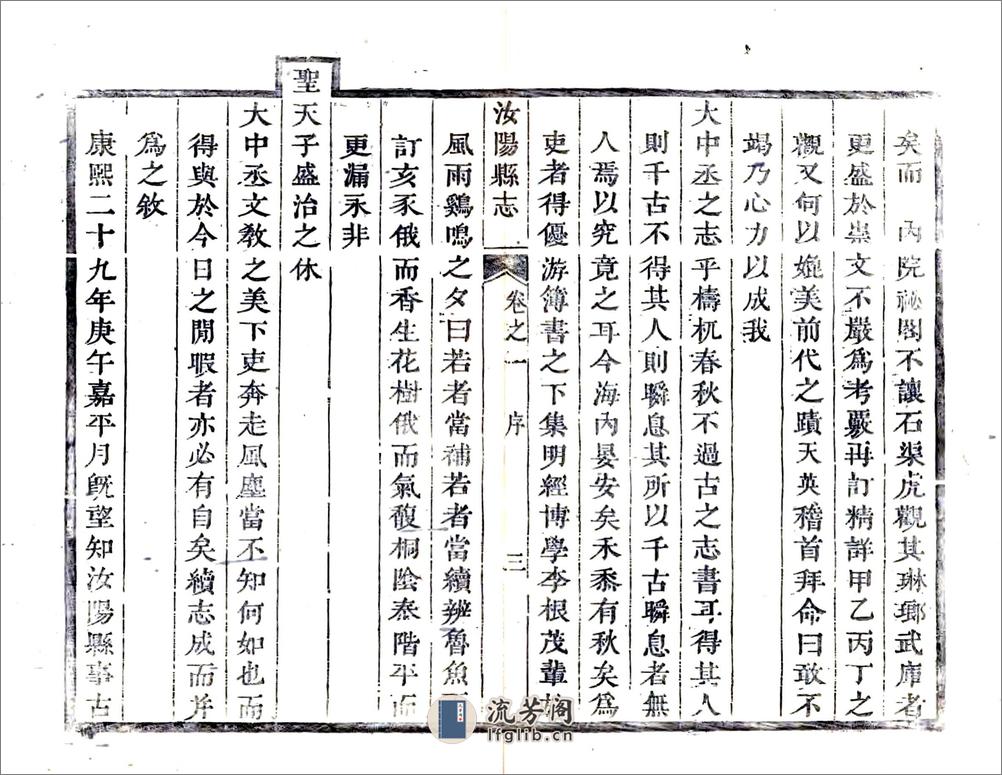 矣而 內院祕閣不讓石渠虎觀其琳瑯武庫者
更盛於崇文不嚴為考覈再訂精詳甲乙丙丁之
觀又何以媲美前代之蹟天英稽首拜命曰敢不
竭乃心力以成我
大中丞之志乎檮杌春秋不過古之志書耳得其人
則千古不得其人則瞬息其所以千古瞬息者無
人焉以究竟之耳今海內晏安矣禾黍有秋矣為
吏者得優游簿書之下集明經博學李根茂輩於
汝陽縣志 卷之一 序 三
風雨鷄鳴之夕曰若者當補若者當續辨魯魚
訂亥豕俄而香生花樹俄而氣馥桐陰泰階平而
更漏永非
聖天子盛治之休
大中丞文教之美下吏奔走風塵當不知何如也而
得與於今日之閒暇者亦必有自矣續志成而并
為之敘
康熙二十九年庚午嘉平月旣望知汝陽縣事古
流芳閣
lfglib.cn